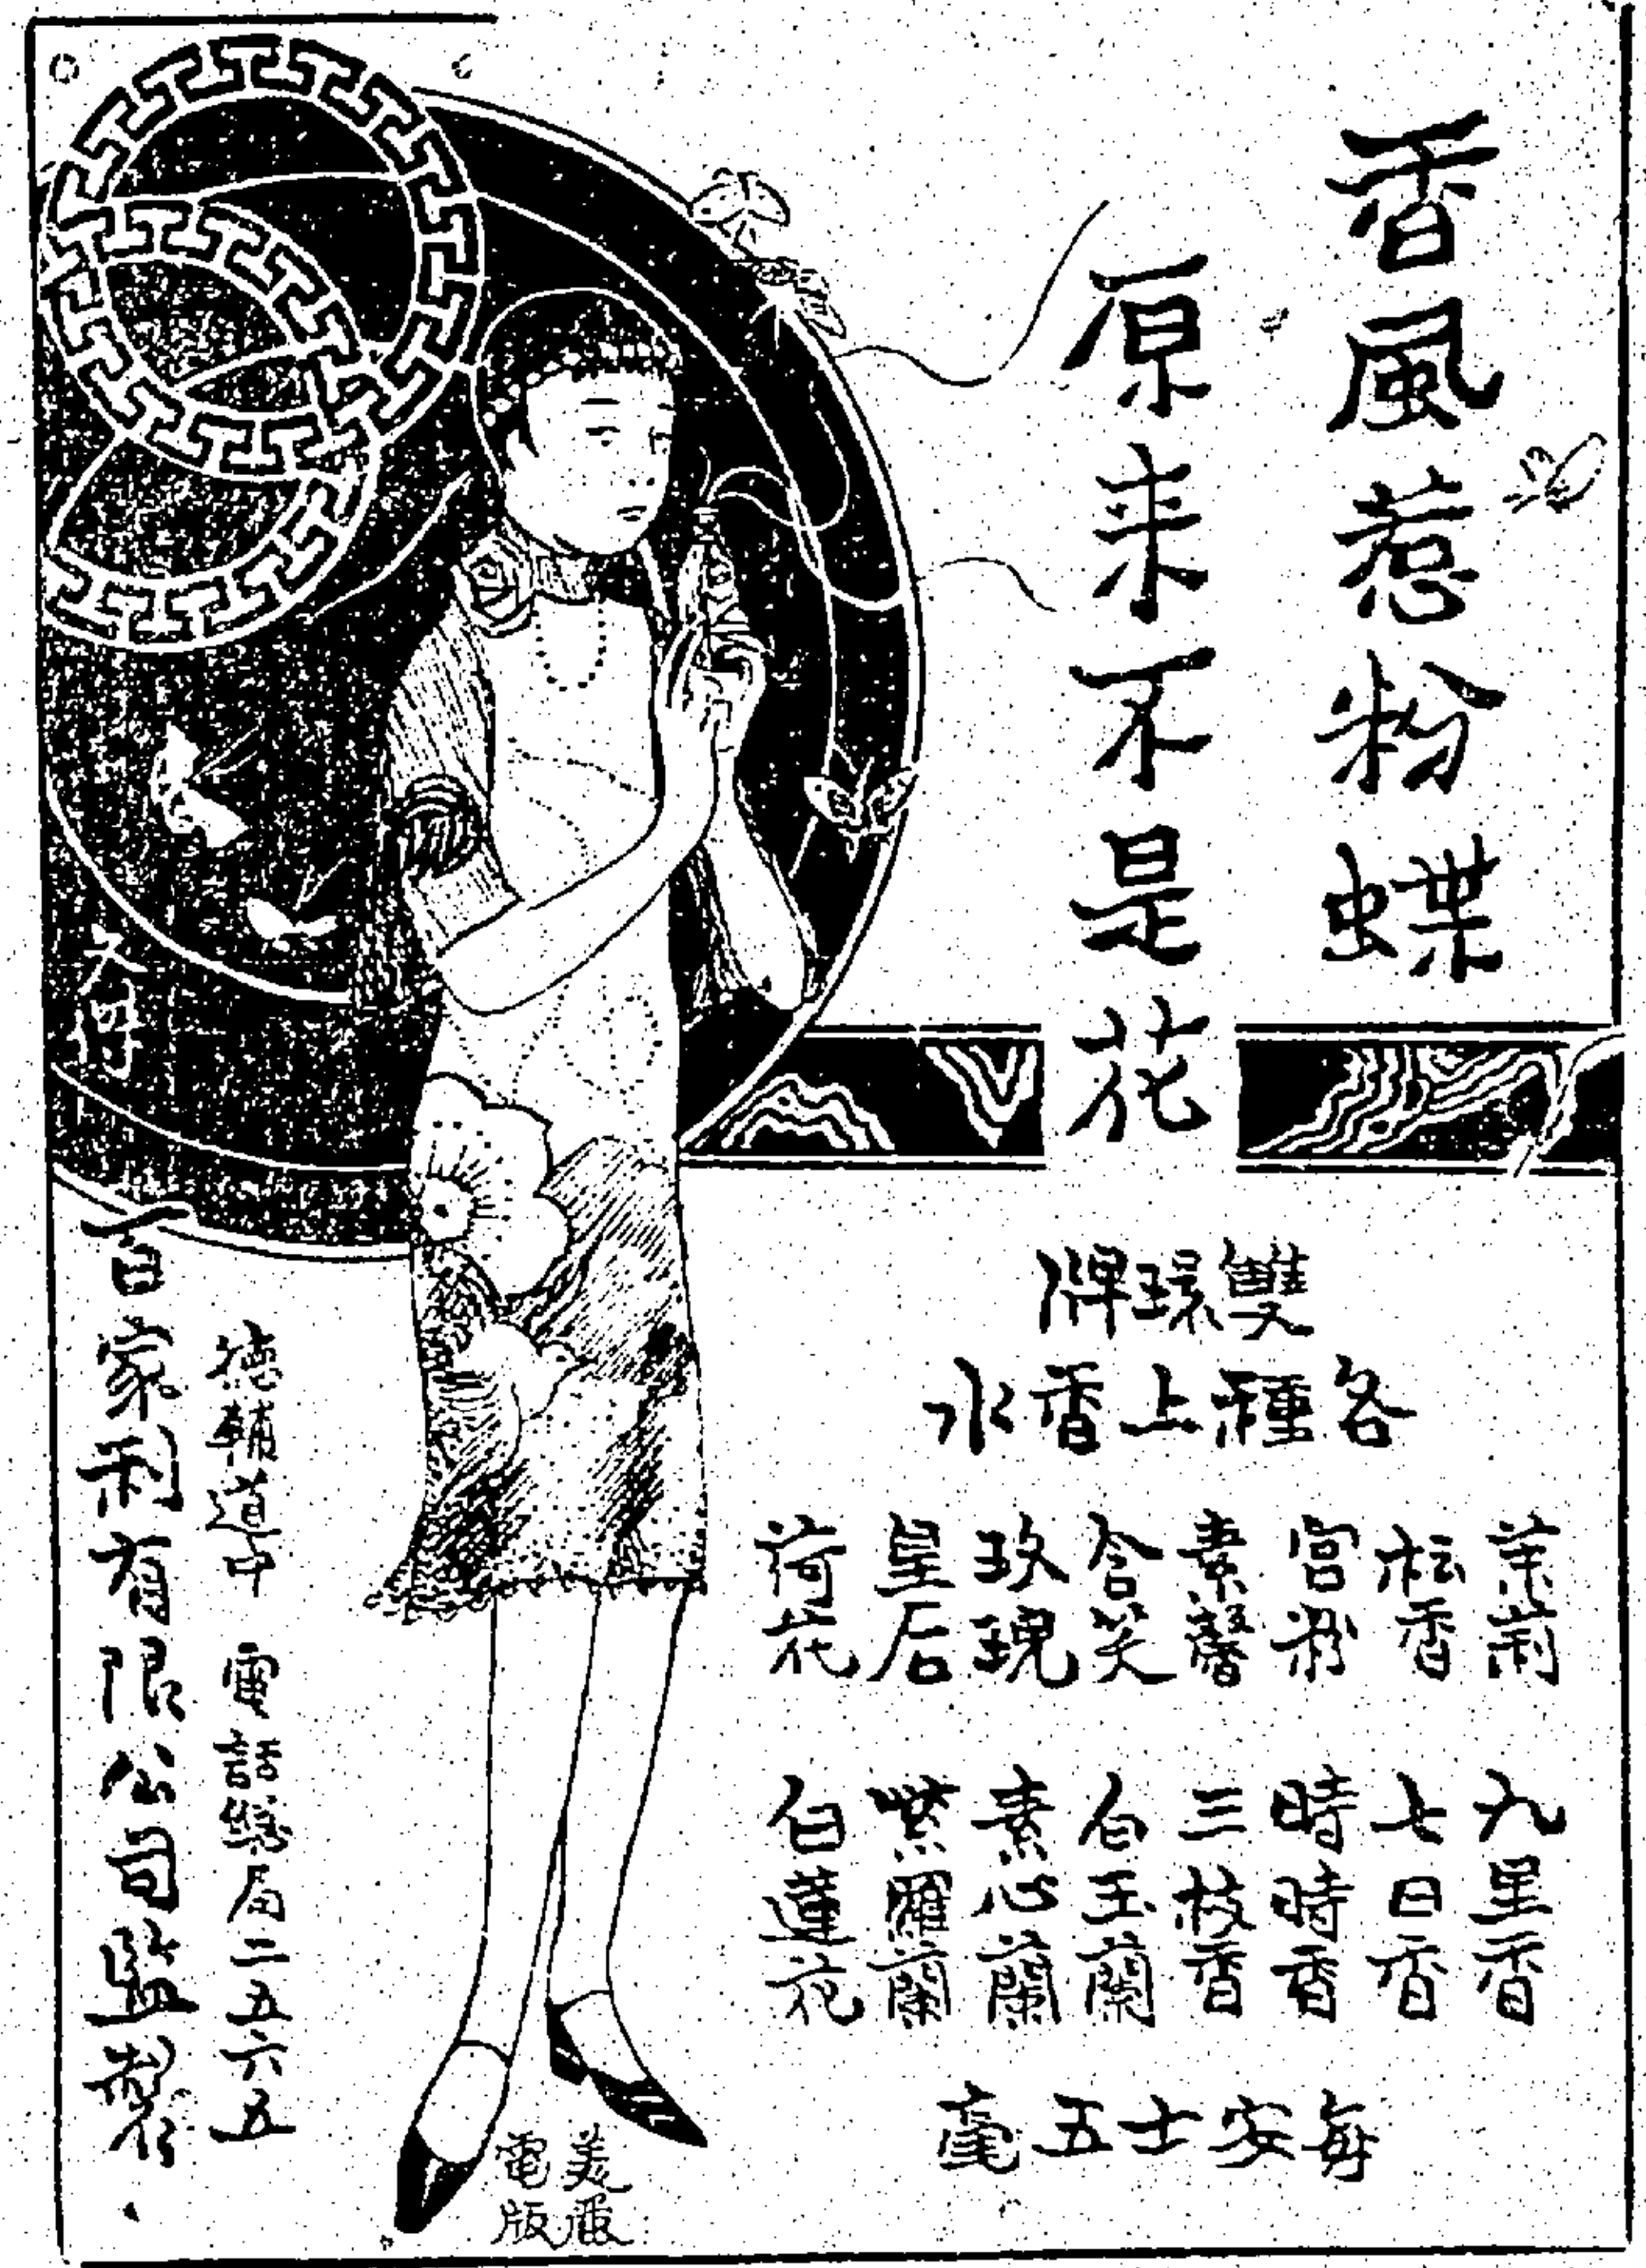 香風惹粉蝶
原来不是花
雙環牌
各種上香水
茉莉
松香
宮粉
素馨
含笑
玫瑰
皇后
荷花
九里香
七日香
時時香
三枝香
白玉蘭
素心蘭
紫羅蘭
白蓮花
每安士五毫
美
電版
德輔道中 電話總局二五六五
百家利有限公司監製